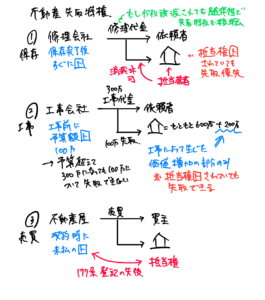 不動産先取特権
もしが仮譲渡されても随伴性で
先取特権も移転
① 修理会社 修理代金 依頼者
保存 保存完了後
すぐに上
消滅時効
抵当権者
抵当権上
されていても
先取優先
300万
② 工事会社 工事代金 依頼者
工事 工事前に
予算額上
100万
→予算超えて
300万になっても100万に
ついて先取できない
100万先取
=もともと600万+200万
工事によって生じた
価値増加の部分のみ
※抵当権上されていても
先取できる
③ 不動産屋 売買 買主
売買 契約時に
未払の上
抵当権
177条 登記の先後